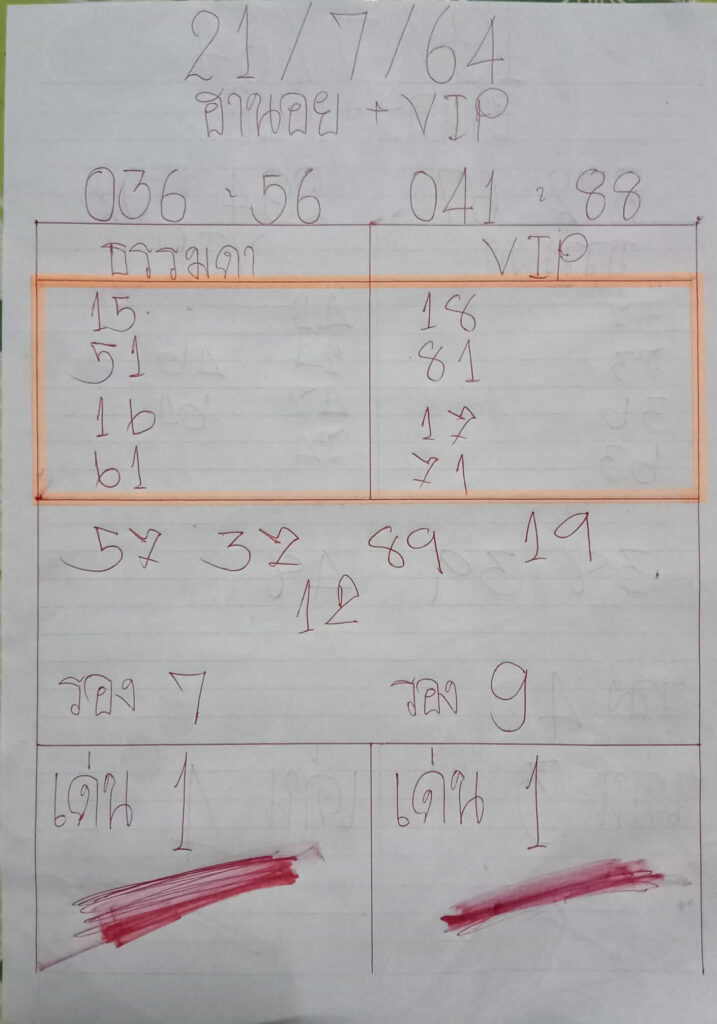 21/7/64
ฮานอย + VIP
036 - 56 041 - 88
ธรรมดา VIP
15 18
51 81
16 17
61 71
57 37 89 19
12
รอง 7 รอง 9
เด่น 1 เด่น 1